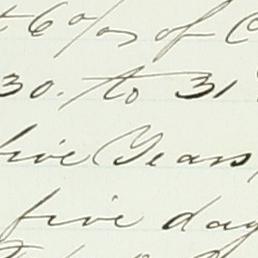 6%s of
30. to 31
five Years,
five day